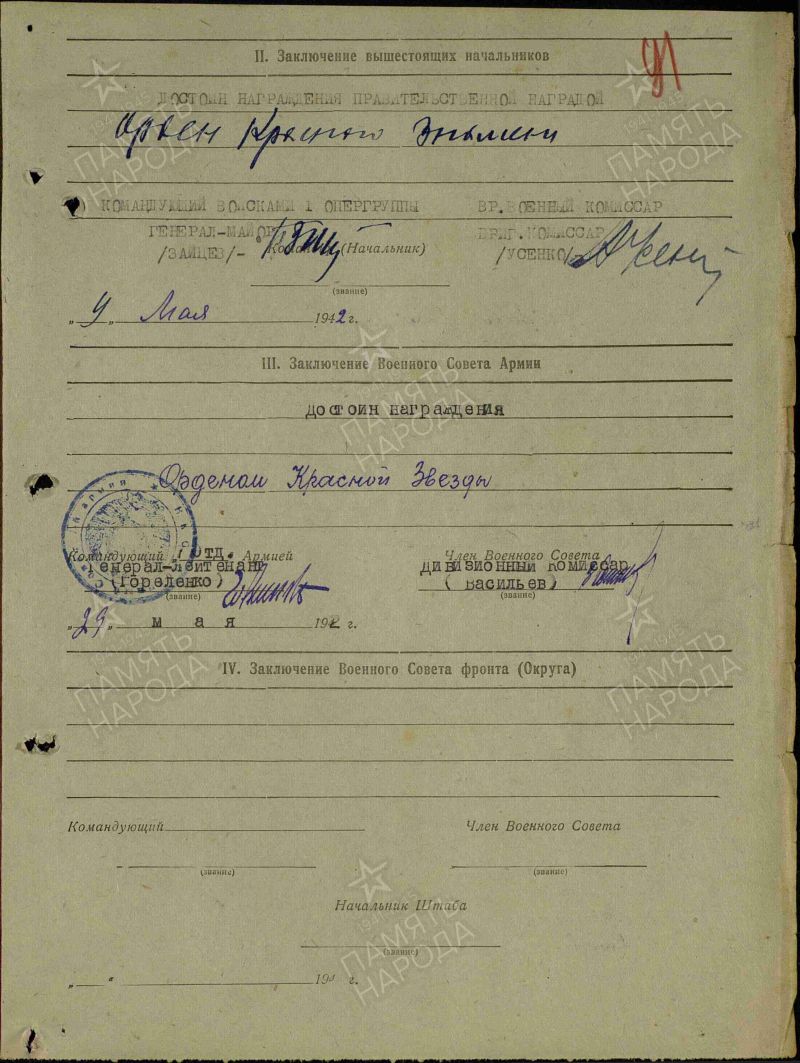 91
II. Заключение вышестоящих начальников
ДОСТОИН НАГРАЖДЕНИЯ ПРАВИТЕЛЬСТВЕННОЙ НАГРАДОЙ
Орден Красного Знамени
КОМАНДУЮЩИЙ ВОЙСКАМИ 1 ОПЕРГРУППЫ ВР. ВОЕННЫЙ КОМИССАР
ГЕНЕРАЛ-МАЙОР (Начальник) БРИГ. КОМИССАР
/ЗАЙЦЕВ/- /УСЕНКО/-
(звание)
„9„ Мая 1942г.
III. Заключение Военного Совета Армии
достоин награждения
Орденом Красной Звезды
Командующий 7 ОТД. Армией Член Военного Совета
Генерал-Лейтенант Дивизионный Комиссар
(Гореленко) (Васильев)
(звание) (звание)
„29„ мая 1942г.
IV. Заключение Военного Совета фронта (Округа)
Командующий Член Военного Совета
(звание) (звание)
Начальник Штаба
(звание)
„ “ 194 г.
ПАМЯТЬ НАРОДА